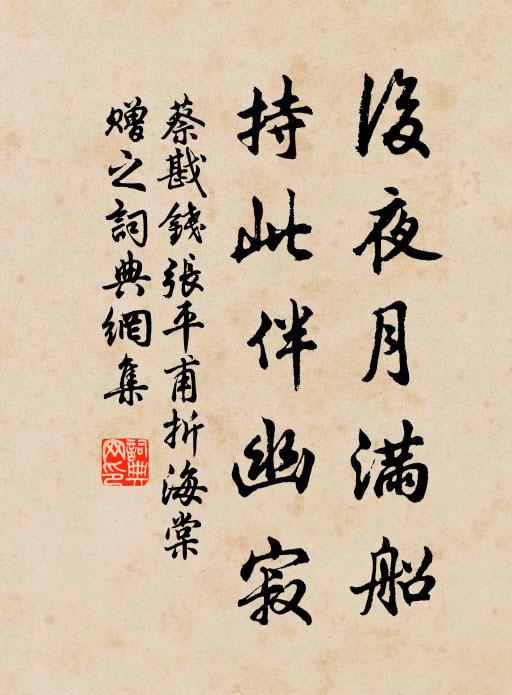 後夜月满船
持此伴幽寂
蔡戡錢張平甫折海棠
赠之詞典網集
詞典
网印